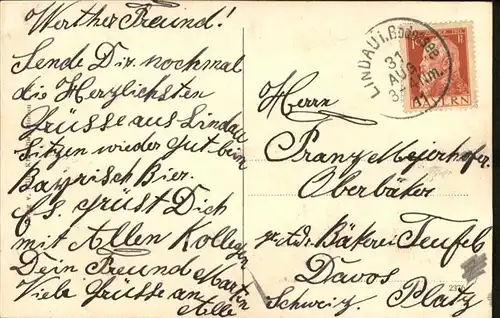 Werther Freund!
Sende Dir nochmal
die Herzlichsten
Grüsse aus Lindau
Sitzen wieder gut beim
Bayrisch Bier.
Es grüst Dich
mit Allen Kollegen
Dein Freund Marten
Viele Grüsse an
Alle
LINDAU i. Bodensee
31
AUG
Nm.
BAYERN
Herrn
Franz Meierhofer
Oberbäker
Bäkerei Teufels
Davos
Schweiz. Platz
2376